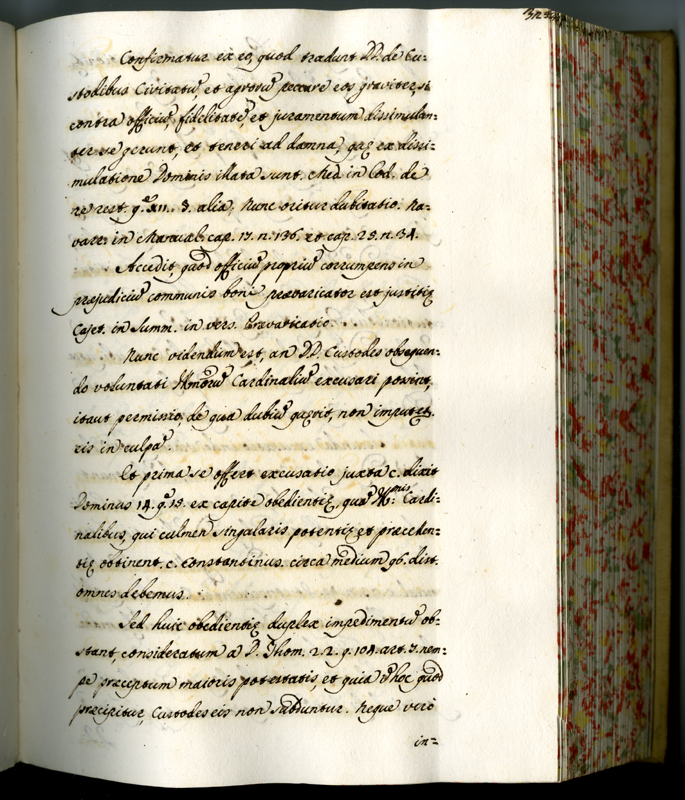 Confirmatur ex eo, quod tradunt DD. de Cu:
stodibus Civitatu᷉, et agroru᷉, peccare eos graviter, si
contra officiu᷉, fidelitate᷉, et juramentum dissimulan:
ter se gerunt, et teneri ad damna, quę ex dissi:
mulatione Dominis illata sunt. Med. in Cod. de
re rest. q. XII. 3. alia, Nunc oritur dubitatio. Na:
varr. in Manual. cap. 17. n. 136. et cap. 25. n. 34.
Accedit, quod officiu᷉ propriu᷉ corrumpens in
præjudiciu᷉ communis boni prævaricator est justitię
Cajet. in Summ. in vers. Prævaricatio.
Nunc videndum est, an DD. Custodes obsequen:
do voluntati Cardinaliu᷉ excusari possint,
itaut permissio, de qua dubiu᷉ quęrit, non imputet.
ris in culpa᷉.
Et prima se offert excusatio juxta c. dixit
Dominus 14. q. 15. ex capite obedientię, qua᷉ Cardi:
nalibus, qui culmen singularis potentię et præceden:
tię obtinent. c. Constantinus. circa medium 96. dist.
omnes debemus.
Sed huic obedientię duplex impedimentu᷉ ob:
stant, consideratum a D. Thom. 2.2. q. 104. art. 5. nem:
pe præceptum maioris potestatis, et quia hoc quod
præcipitur, Custodes eis non subduntur. Neque vero
in=